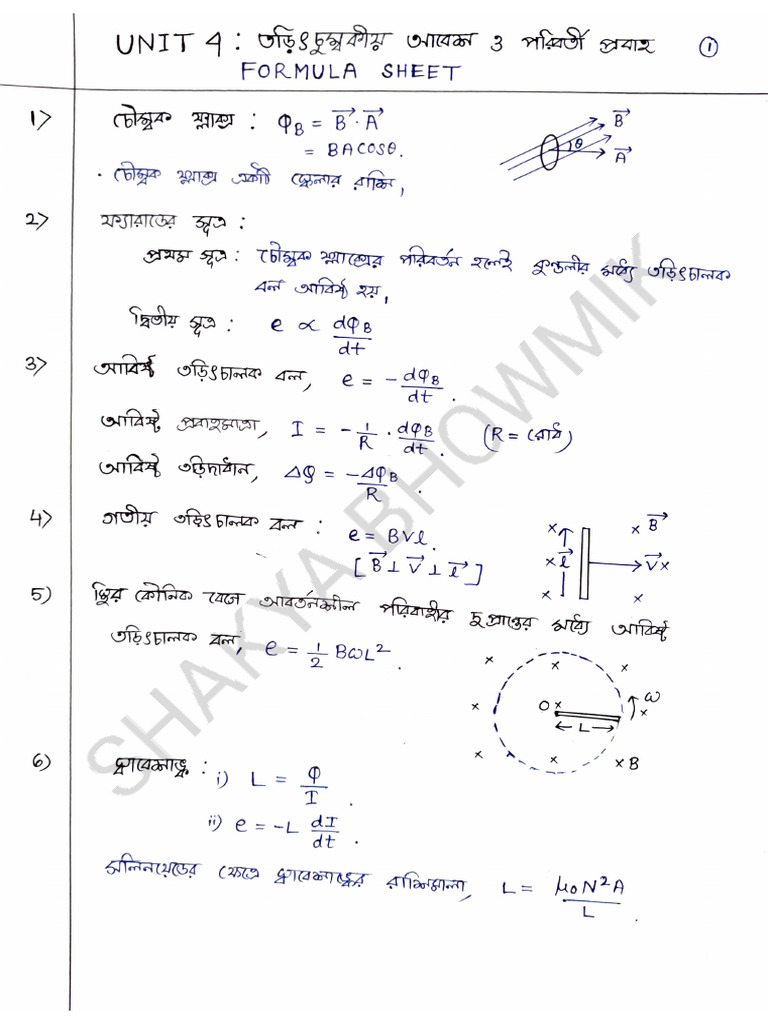 UNIT 4 : তড়িৎচুম্বকীয় আবেশ ও পরিবর্তী প্রবাহ ①
FORMULA SHEET
1> চৌম্বক ফ্লাক্স : φB = B⃗ · A⃗
= BACOSθ.
B⃗
θ
A⃗
· চৌম্বক ফ্লাক্স একটি স্কেলার রাশি,
2> ফ্যারাডের সূত্র :
প্রথম সূত্র : চৌম্বক ফ্লাক্সের পরিবর্তন হলেই কুণ্ডলীর মধ্যে তড়িৎচালক
বল আবিষ্ট হয়,
দ্বিতীয় সূত্র : e ∝ dφB/dt
3> আবিষ্ট তড়িৎচালক বল, e = - dφB/dt .
আবিষ্ট প্রবাহমাত্রা, I = - 1/R · dφB/dt . (R = রোধ)
আবিষ্ট তড়িদাধান, ΔQ = -ΔφB/R .
4> গতীয় তড়িৎচালক বল : e = Bvl.
[ B⃗ ⊥ V⃗ ⊥ l⃗ ]
x x B⃗
x l⃗ V⃗ x
x x
5) স্থির কৌনিক বেগে আবর্তনশীল পরিবাহীর দুপ্রান্তের মধ্যে আবিষ্ট
তড়িৎচালক বল, e = 1/2 BωL² .
x x x
x O x ω x
← L →
x x x B
6) স্বাবেশাঙ্ক : i) L = φ/I .
ii) e = -L dI/dt .
সলিনয়েডের ক্ষেত্রে স্বাবেশাঙ্কের রাশিমালা, L = μ₀N²A/L .
SHAKYA BHOWMIK